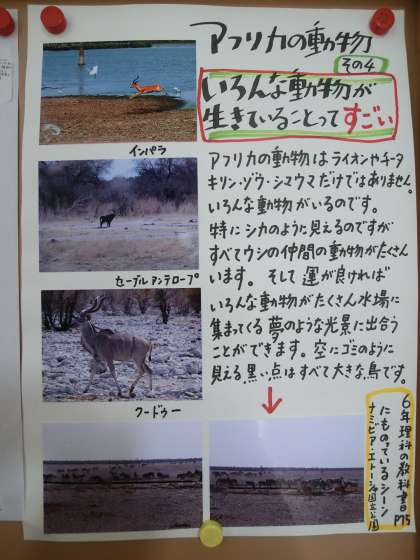 アフリカの動物
その4
いろんな動物が
生きていることってすごい
インパラ
セーブルアンテロープ
クードゥー
アフリカの動物はライオンやチータ
キリン・ゾウ・シマウマだけではありません。
いろんな動物がいるのです。
特にシカのように見えるのですが
すべてウシの仲間の動物がたくさん
います。そして運が良ければ
いろんな動物がたくさん水場に
集まってくる夢のような光景に出合う
ことができます。空にゴミのように
見える黒い点はすべて大きな鳥です。
6年理科の教科書P75
にものっているシーン
ナミビア・エトーシャ国立公園